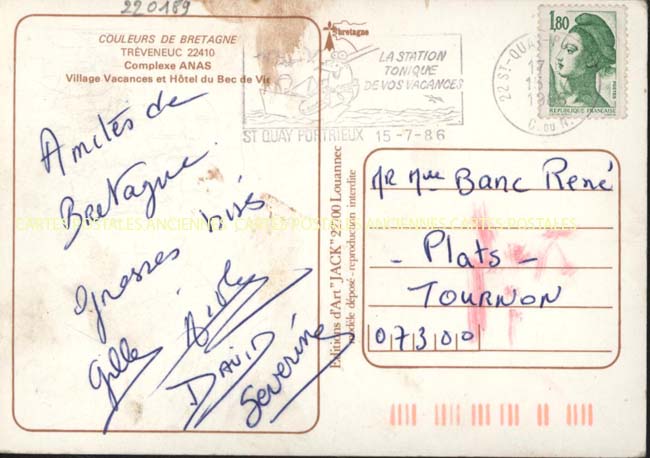 220189
COULEURS DE BRETAGNE
TRÉVENEUC 22410
Complexe ANAS
Village Vacances et Hôtel du Bec de Vir
Amitiés de
Bretagne.
grosses bisés
Gille
DAVID
Severine
bretagne
LA STATION
TONIQUE
DE VOS VACANCES
ST QUAY PORTRIEUX 15-7-86
22 ST-QUAY-
C. DU N.
1,80
POSTES
REPUBLIQUE FRANÇAISE
Editions d'Art "JACK" 22700 Louannec
modèle déposé - reproduction interdite
MR Mme Banc René
- Plats -
TOURNON
07300
CARTES POSTALES ANCIENNES CARTES POSTALES ANCIENNES CARTES POSTALES